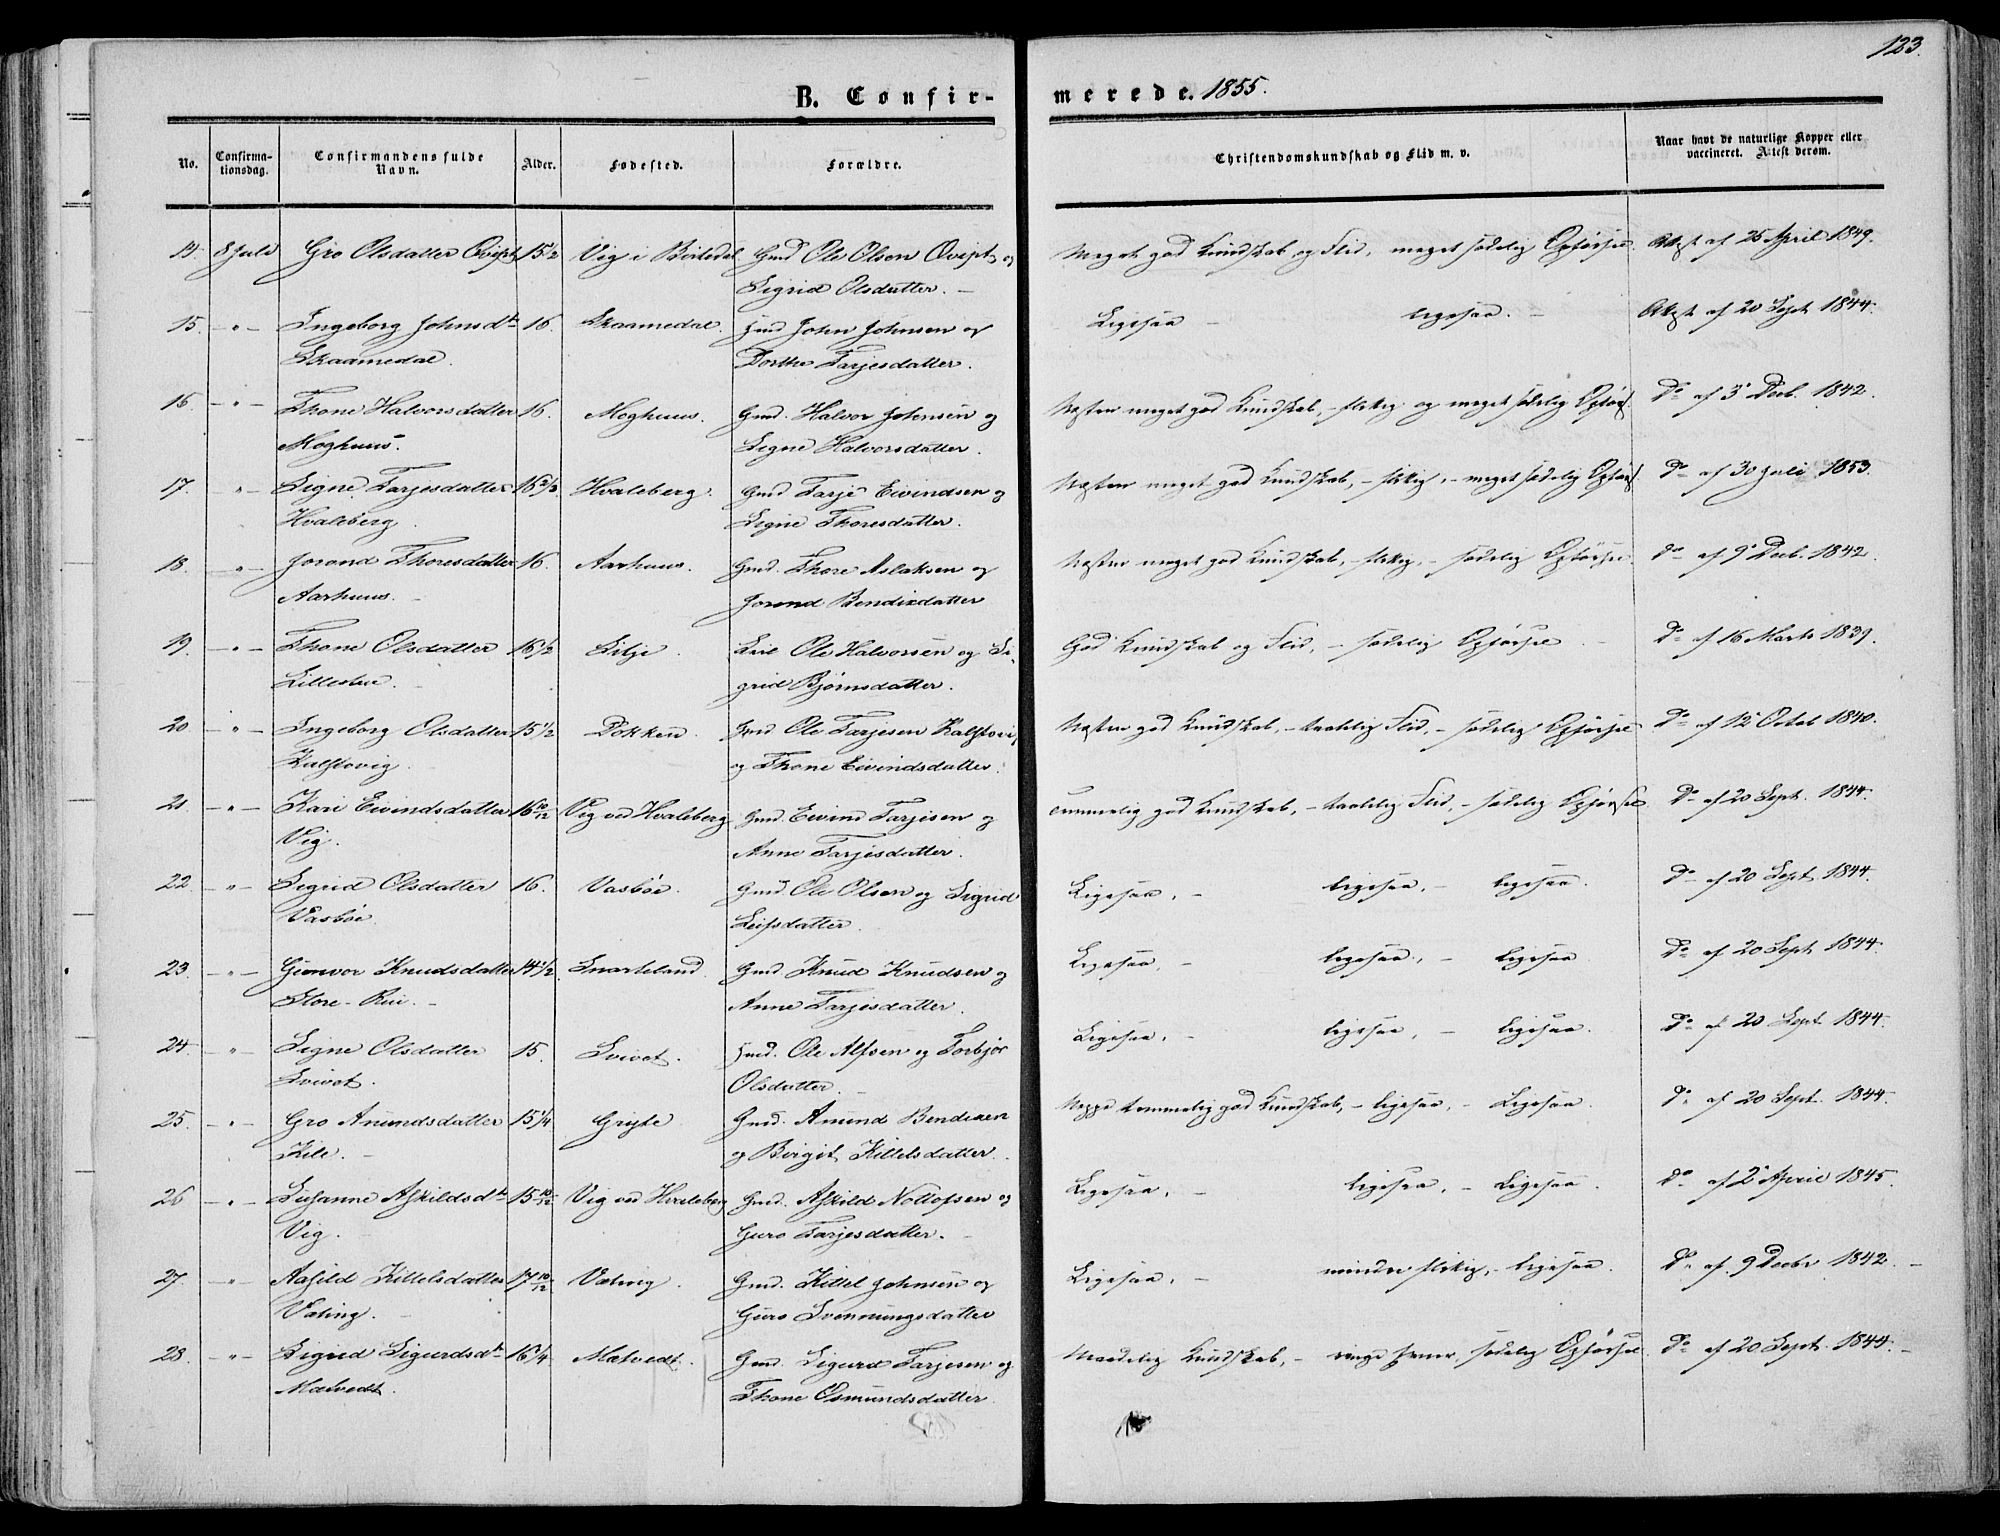 123.
B. Confirmerede. 1855.
No. Confirmationsdag. Confirmandens fulde Navn. Alder. Fødested. Forældre. Christendomskundskab og Flid m. v. Naar havt de naturlige Kopper eller vaccineret. Attest derom.
14. 8 Juli Gro Olsdatter Qvipt 15 1/2 Vig i Birtedal Gmd Ole Olsen Qvipt og Meget god Kundskab og Flid, meget sædelig Opførsel. Attest af 25 April 1849.
Sigrid Olsdatter. –
15. –"– Ingeborg Johnsdtr 16. Skaamedal. Hmd John Johnsen og Ligesaa – ligesaa. – Attest af 20 Sept 1844.
Skaamedal. Dorthe Tarjesdatter.
16. –"– Thone Halvorsdatter 16. Moghuus. Gmd. Halvor Johnsen og Næsten meget god Kundskab, – flittig og meget sædelig Opførs. Do af 3 Decb. 1842.
Moghuus. Signe Halvorsdatter.
17. "– Signe Tarjesdatter 16 2/3 Hvaleberg. Gmd Tarje Eivindsen og Næsten meget god Kundskab, – flittig, – meget sædelig Opførs. Do af 30 Juli 1853.
Hvaleberg. Signe Thoresdatter.
18. "– Jorond Thoresdatter 16. Aarhuus. Gmd. Thore Aslaksen og Næsten meget god Kundskab, – flittig, – sædelig Opførsel. Do af 9 Decb. 1842.
Aarhuus. – Jorond Bendixdatter
19. –"– Thone Olsdatter 16 1/2 Sitje. Leil Ole Halvorsen og Si- God Kundskab og Flid, – sædelig Opførsel – Do af 16 Marts 1839.
Lillestue. – grid Bjørnsdatter.
20 –"– Ingeborg Olsdatter 15 1/2 Dokken. Gmd Ole Tarjesen Kalstovig Næsten god Kundskab, – taalelig Flid, – sædelig Opførsel Do af 12 Octob 1840.
Kalstovig. og Thone Eivindsdatter.
21 –"– Kari Eivindsdatter 16 10/12 Vig ved Hvaleberg Gmd. Eivind Tarjesen og Temmelig god Kundskab, – taalelig Flid, – sædelig Opførsel. Do af 20 Sept. 1844.
Vig. Anne Tarjesdatter.
22 –"– Sigrid Olsdatter 16. Vasbøe. Gmd Ole Olsen og Sigrid Ligesaa, – ligesaa, – ligesaa. Do af 20 Sept 1844.
Vasbøe. Leifsdatter.
23. –"– Gunvor Knudsdatter 14 1/2 Snarteland. Gmd Knud Knudsen og Ligesaa, – ligesaa, – ligesaa Do af 20 Sept 1844.
Store-Rui. – Anne Tarjesdatter.
24. –"– Signe Olsdatter 15. Svivot. Hmd. Ole Alfsen og Torbjør Ligesaa, – ligesaa, – ligesaa. Do af 20 Sept 1844.
Svivot. Olsdatter. –
25. –"– Gro Anundsdatter 15 1/4 Grytte Gmd. Anund Bendixen Neppe temmelig god Kundskab, – ligesaa, – Ligesaa. Do af 20 Sept 1844.
Kile. – og Birgit Kittelsdatter.
26 –"– Susanne Askildsdtr 15 10/12 Vig ved Hvaleberg Gmd. Askild Nottofsen og Ligesaa, – ligesaa, – Ligesaa. Do af 2 April 1845.
Vig. Guro Tarjesdatter. –
27. –"– Aasild Kittelsdatter 17 10/12 Vating. Gmd. Kittel Johnsen og Ligesaa, – mindre flittig, – ligesaa. Do af 9 Decbr 1842. –
Vating. – Guro Svenningsdatter
28. –"– Sigrid Sigurdsdtr 16 1/4 Mælvedt. Gmd. Sigurd Tarjesen og Maadelig Kundskab, – ringe Evner, sædelig Opførsel. Do af 20 Sept. 1844. –
Mælvedt. Thone Osmundsdatter.